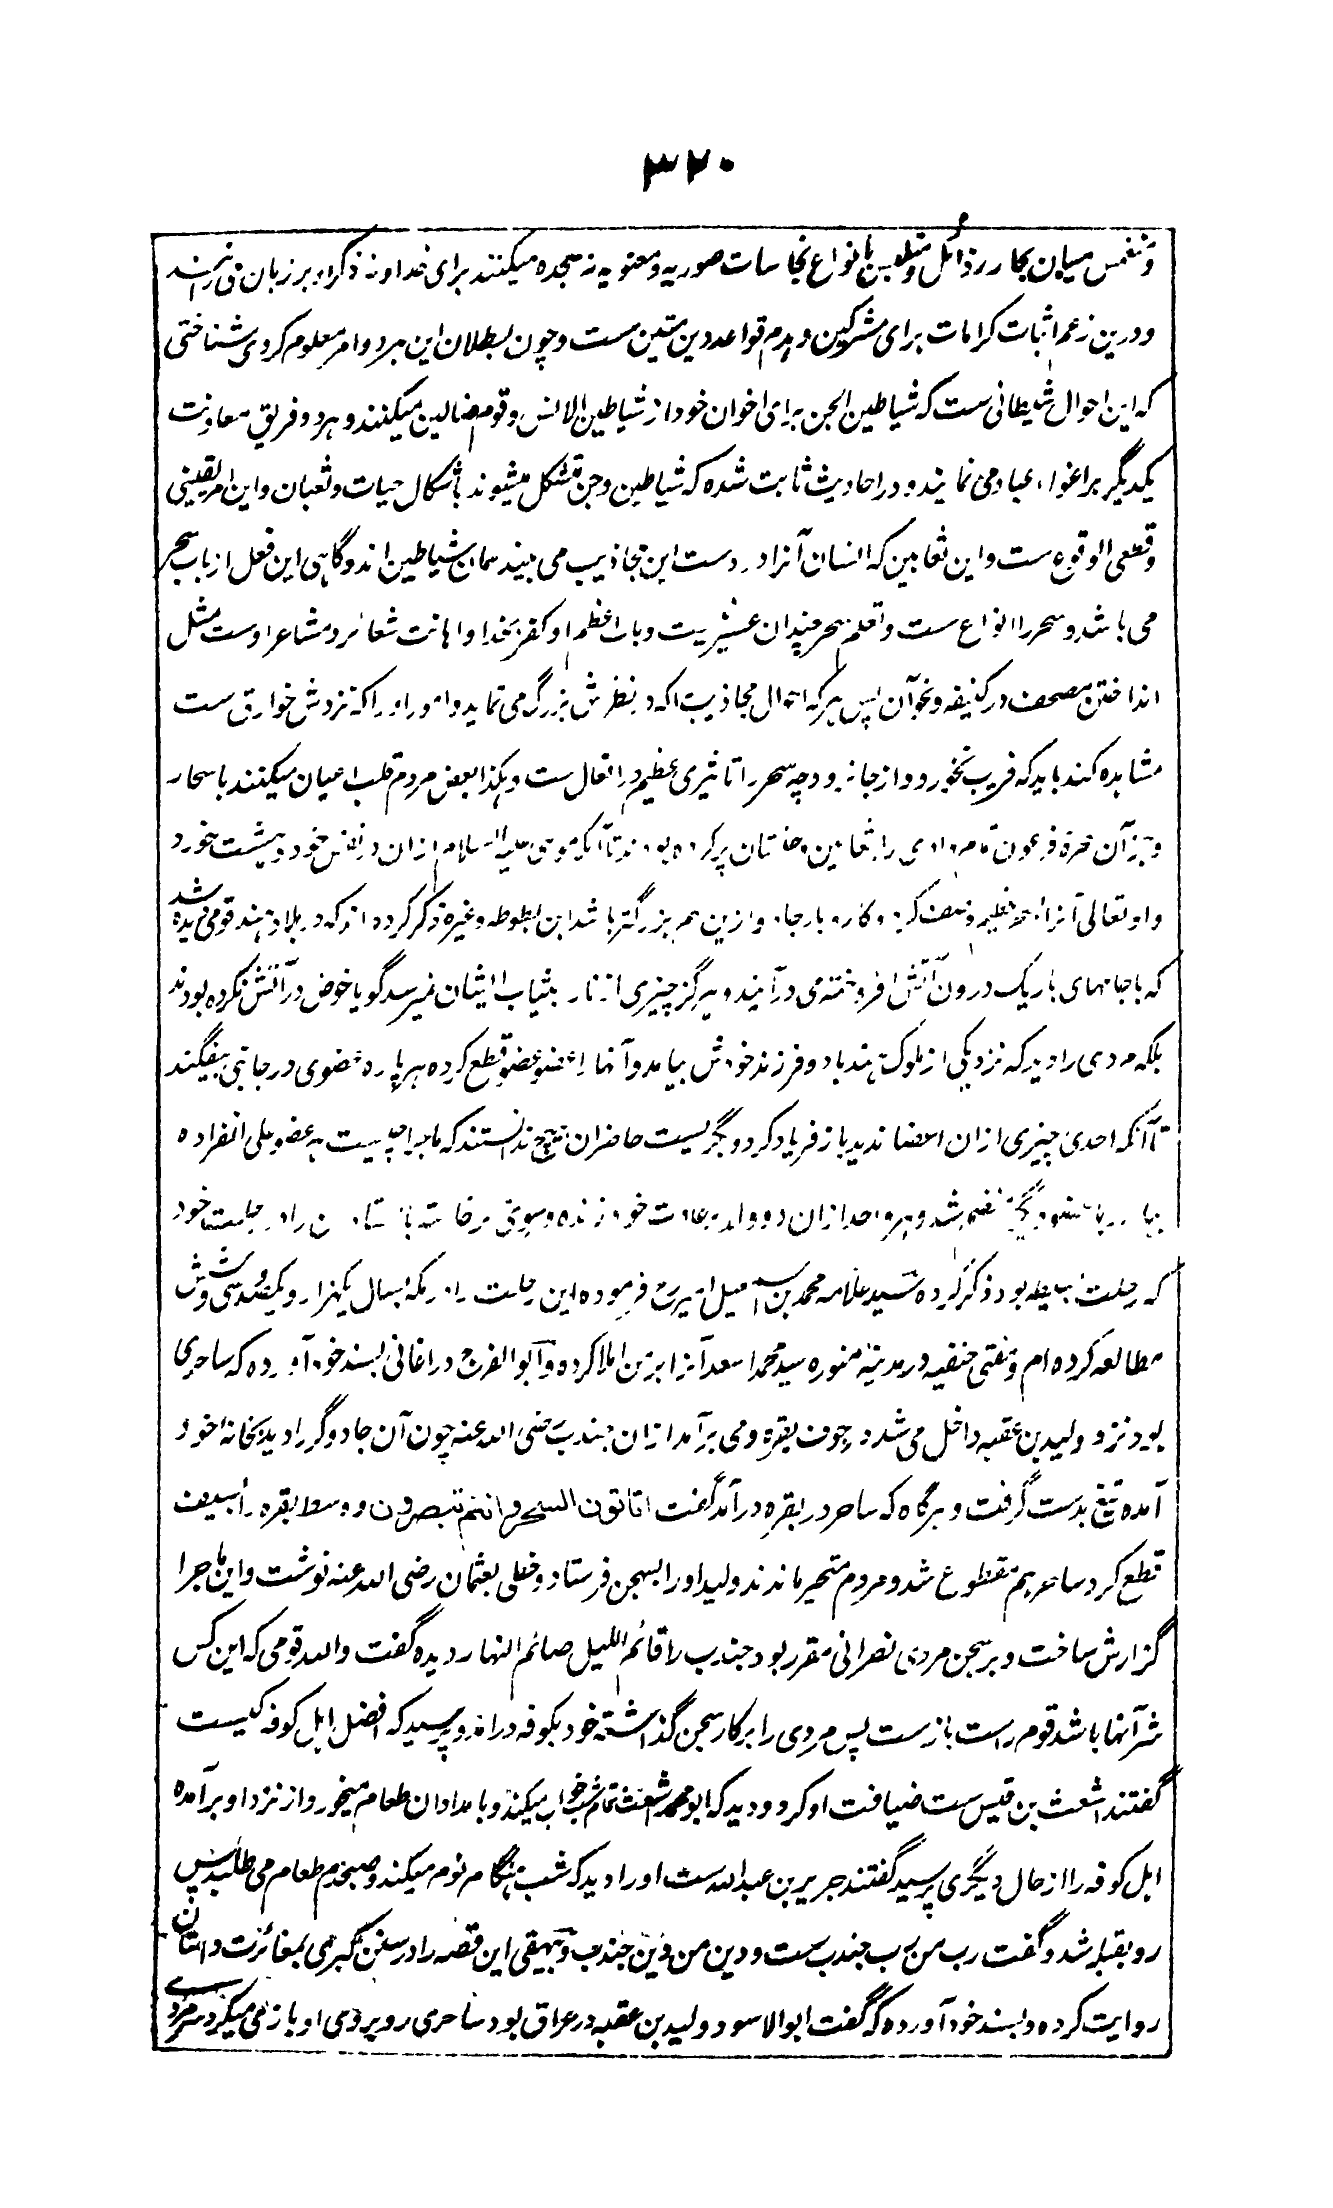 ۳۲۰
و منغمس میان بحار رذائل و متلبس بانواع نجاسات صوریه و معنویه نه سجده میکنند برای خدا و نه ذکر او بر زبان می رانند
و درین زعم اثبات کرامات برای مشرکین و هدم قواعد دین متین ست و چون بطلان این هر دو امر معلوم کردی شناختی
که این احوال شیطانی ست که شیاطین الجن برای اخوان خود از شیاطین الانس و قوم ضالین میکنند و هر دو فریق معاونت
یکدیگر بر اغواء عباد می نمایند و در احادیث ثابت شده که شیاطین و جن متشکل میشوند باشکال حیات و ثعبان و این امر یقینی
و قطعی الوقوع ست و این ثعابین که انسان آنرا در دست این مجاذیب می بیند همان شیاطین اند و گاهی این فعل از باب سحر
می باشد و سحر را انواع ست و تعلم سحر چندان عسیر نیست و باب اعظم او کفر بخدا و اهانت شعائر و مشاعر اوست مثل
انداختن مصحف در کنیفه و نحو آن پس هر که احوال مجاذیب را که در نظرش بزرگ می نماید و امور او را که نزدش خوارق ست
مشاهده کند باید که فریب نخورد و از جا نرود چه سحر را تاثیری عظیم در افعال ست و هکذا بعض مردم قلب اعیان میکنند باسحار
و جز آن سحره فرعون تمام وادی را بثعابین و حیتان پر کرده بودند تا آنکه موسی علیه السلام ازان در نفس خود دهشت بخورد
و او تعالی آنرا سحر عظیم وصف کرد و کاروبار جادو ازین هم بزرگتر باشد ابن بطوطه و غیره ذکر کرده اند که در بلاد هند قومی دیده شد
که با جامهای باریک درون آتش افروخته می درآیند و هرگز چیزی از نار بثیاب ایشان نمیرسد گویا خوض در آتش نکرده بودند
بلکه مردی را دید که نزد یکی از ملوک هند با دو فرزند خودش بیامد و آنها را عضو عضو قطع کرده هر پاره عضوی در جانبی بیفگند
تا آنکه احدی چیزی ازان اعضا ندید باز فریاد کرد و بگریست حاضران هیچ ندانستند که ماجرا چیست هر عضو علی انفراده
که رحلت بسیطه بود ذکر کرده سید علامه محمد بن اسمعیل امیر رح فرموده این رحلت را در مکه بسال یکهزار و یکصد و سی و شش
مطالعه کرده ام و مفتی حنفیه در مدینه منوره سید محمد اسعد آنرا بر من املا کرده و ابو الفرج در اغانی بسند خود آورده که ساحری
بود نزد ولید بن عقبه داخل می شد در جوف بقره و می برآمد ازان جندب رضی الله عنه چون آن جادوگر را دید بخانه خود
آمده تیغ بدست گرفت و هرگاه که ساحر در بقره درآمد گفت افتأتون السحر و انتم تبصرون و وسط بقره را بسیف
قطع کرد ساحر هم مقطوع شد و مردم متحیر ماندند ولید او را بسجن فرستاد و خطی بعثمان رضی الله عنه نوشت و این ماجرا
گزارش ساخت و بر سجن مردی نصرانی مقرر بود جندب را قائم اللیل صائم النهار دیده گفت والله قومی که این کس
شر آنها باشد قوم راست باز ست پس مردی را بر کار سجن گذاشته خود بکوفه درآمد و پرسید که افضل اهل کوفه کیست
گفتند اشعث بن قیس ست ضیافت او کرد و دید که ابو محمد اشعث تمام شب خواب میکند و بامدادان طعام میخورد از نزد او برآمده
اهل کوفه را از حال دیگری پرسید گفتند جریر بن عبدالله ست او را دید که شب هنگام نوم میکند و صبحدم طعام می طلبد پس
رو بقبله شد و گفت رب من رب جندب ست و دین من دین جندب و بیهقی این قصه را در سنن کبری بمغائرت داستان
روایت کرده و بسند خود آورده که گفت ابو الاسود ولید بن عقبه در عراق بود ساحری روبروی او بازی میکرد سر مردی